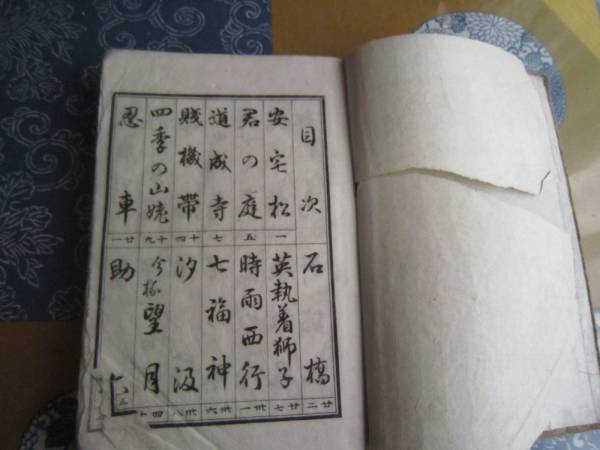 目次
安宅松 一
君の庭 五
道成寺 七
賤機帶 十四
四季の山姥 十九
忍車 廿一
石橋 廿二
英執着獅子 廿七
時雨西行 卅一
七福神 卅六
汐汲 卅八
今様望月 四十
助